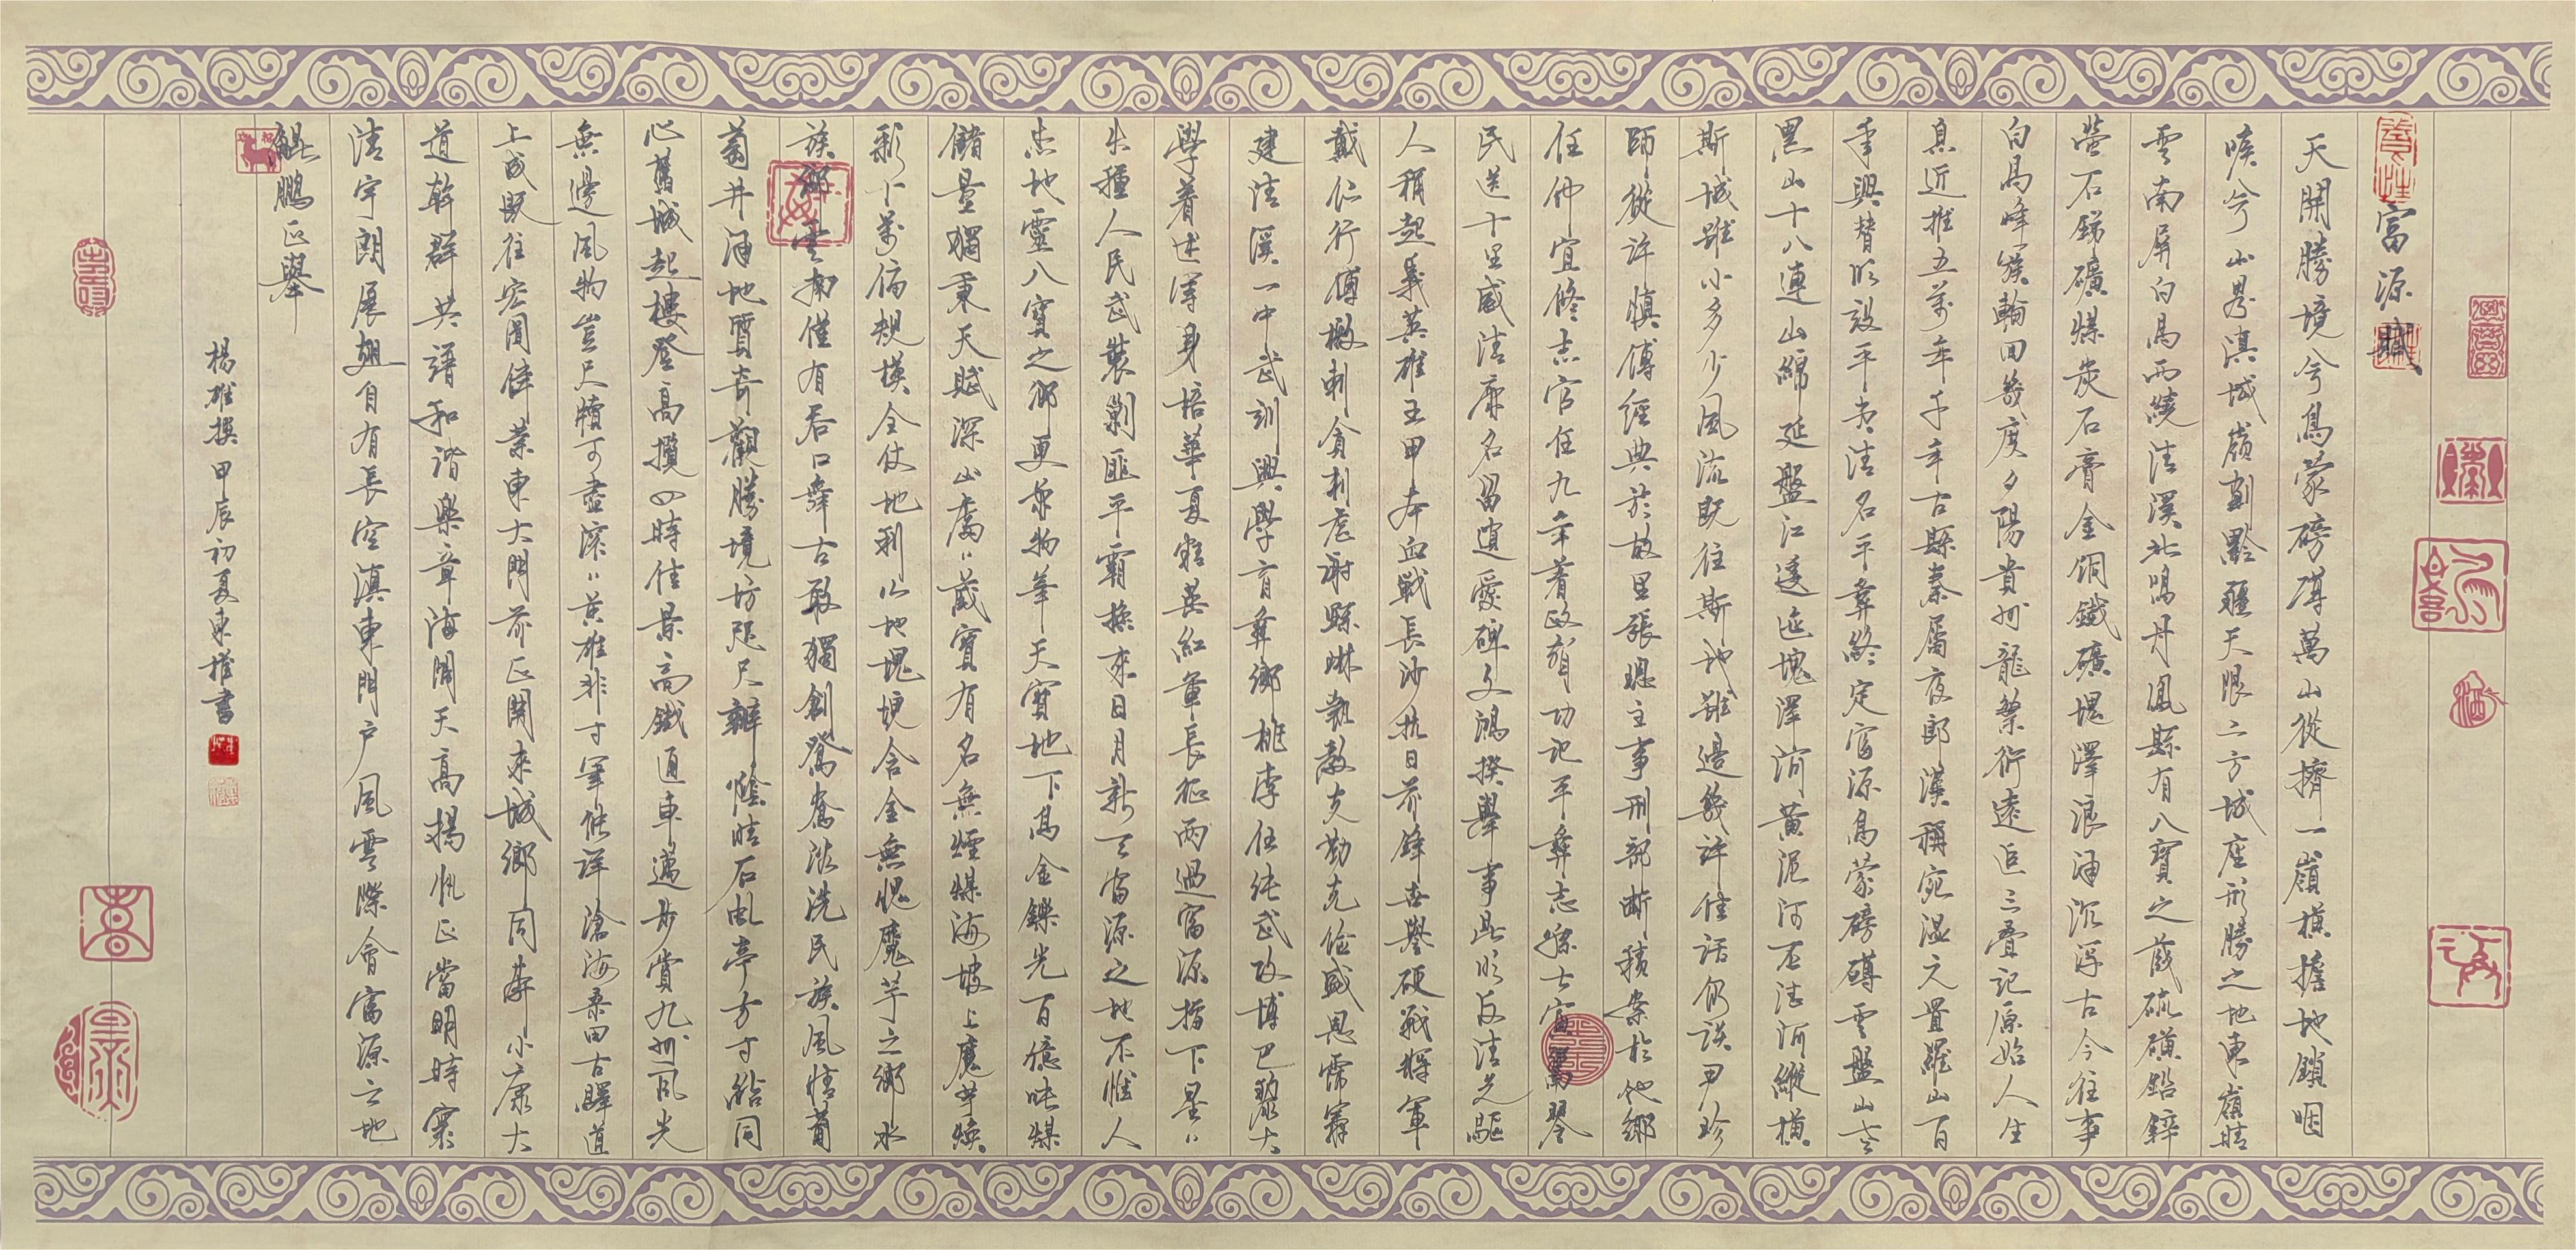 富源賦
天開勝境兮烏蒙磅礴萬山從擠一嶺橫擔地鎖咽
喉兮小界滇城嶺劃黔疆天限二方城座形勝之地東嶺晴
雲南屏白馬西繞清溪北鳴丹鳳縣有八寶之藏硫磺鉛鋅
螢石銻礦煤炭石膏金銅鐵礦塊澤浪涌沉浮古今往事
白馬峰簇輪回幾度夕陽貴州龍繁衍遠近三疊記原始人生
息近推五萬年千年古縣秦屬夜郎漢稱宛溫元置羅山百
年興替明設平夷清名平彝終定富源烏蒙磅礴雲盤山
黑山十八連山綿延盤江逶迤塊澤河黃泥河丕德河縱橫
斯城雖小多少風流既往斯地雖邊幾許佳話仍談尹珍
師從許慎傅經典於故里張聰主事刑部斷積案於他鄉
任仲宜修志官任九年著政有功記平彝志孫士寅萬琴
民送十里威清廉名留遺愛碑文鴻揆舉事此明反清先驅
人稱起義英雄王甲本血戰長沙抗日前鋒世譽硬戰將軍
戴仁行傅檄刺貪刺虐謝縣琳執教克勤克儉盛恩霈霖
建清溪一中武訓興學育彝鄉桃李任純武攻博巴黎大
學著述渾身培華夏精英紅軍長征兩過富源播下星〻
火種人民武裝剿匪平霸換來日月新天富源之地不惟人
杰地靈八寶之鄉更參物華天寶地下烏金鑠光百億噸煤
儲量獨秉天賦深山處〻藏寶有名無煙煤海坡上魔芋煥
彩十萬倫規模全仗地利小地塊埂含金無愧魔芋之鄉水
族鄉雲南僅有吞口舞古敢獨創鴛鴦浴洗民族風情葡
萄井涌地質奇觀勝境坊咫尺辨陰晴石虬亭方寸給同
心舊城起樓登高攬四時佳景高鐵通車邁步賞九州風光
無邊風物豈尺牘可盡滾〻英雄非寸筆能詳滄海桑田古驛道
上成既往宏圖偉業東大門前正開來城鄉同奔小康大
道幹群共譜和諧樂章海闊天高揚帆正當明時寰
清宇朗展翅自有長空滇東門戶風雲際會富源之地
鯤鵬正舉
楊雄撰 甲辰初夏東權書